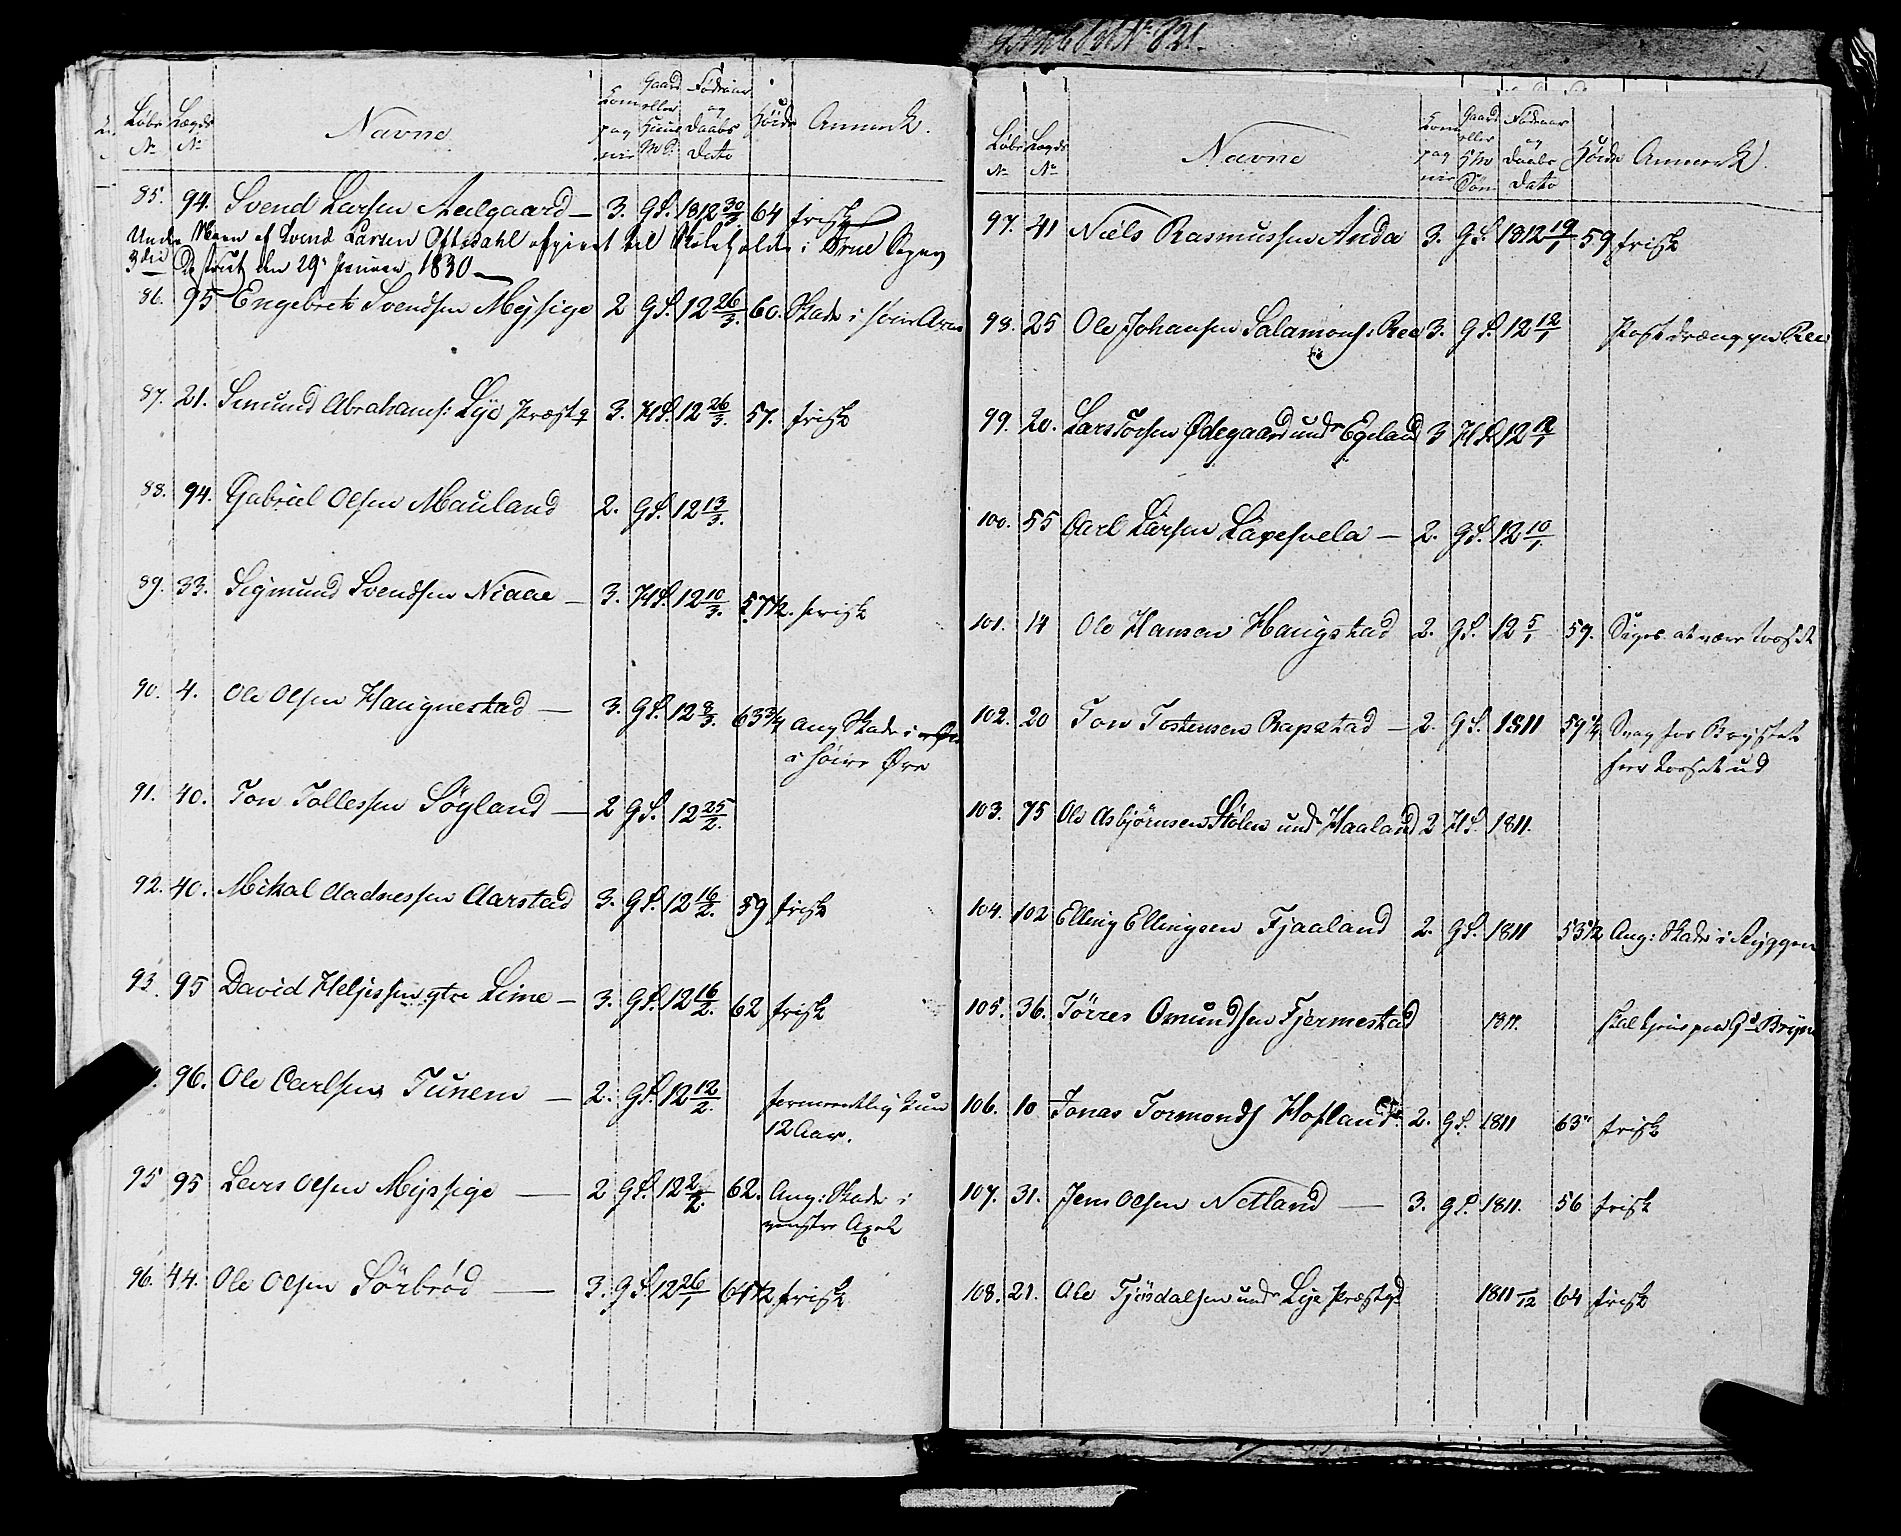 Løbe No Lægds No Navne Compagnie Gaard eller Huus M.S. Fødeaar og Daabs Dato Høide Anmerk.
85. 94. Svend Larsen Aalgaard — 3. GS. 1812 30/3 64 frisk
Under Navn af Svend Larsen Oftedahl afgivet til Skoleholder i Sogn
3die Distrikt den 29 Januar 1830
86. 95 Engebret Svendsen Mysige 2 GS. 12 26/3. 60. Skade i høire Arm
87. 21. Smund Abrahams: Lye Præstg 3. HS. 12 26/3. 57. frisk
88. 94. Gabriel Olsen Mauland 2. GS. 12 13/3.
89. 33. Sigmund Svendsen Niaae — 3. HS. 12 10/3. 57 1/2. frisk
90. 4. Ole Olsen Haugnestad — 3. GS. 12 8/3. 63 3/4 Ang Skade i
i høire Øre
91. 40. Ton Tollessen Söyland — 2 GS. 12 25/2.
92. 40. Mikal Aadnessen Aarstad 3. GS. 12 16/2. 59 frisk
93. 95 David Helgessen ytre Lime — 3. GS. 12 16/2. 62 frisk
96. Ole Carlsen Tunem — 2. GS. 12 12/2. formeentlig kun
12 Aar.
95 95 Lars Olsen Myssige — 2 GS. 12 2/2. 62. Ang: Skade i
venstre Axel
96. 44. Ole Olsen Sörbröd — 3. GS. 12 26/1 64 1/2 frisk
No 821.
Løbe No Lægds No Navne Compagnie Gaard eller Hs Søn Fødeaar og Daabs Dato Høide Anmerk.
97. 41 Niels Rasmussen Anda 3. GS. 1812 19/1 59 frisk
98. 25 Ole Johansen Salamons: Ree 3. GS. 12 12/1 Postdræng paa Ree
99. 20. Lars Torsen Ødegaard undr Egeland 3 HS. 12 12/1
100. 55 Carl Larsen Laxesvela — 2. GS. 12 10/1.
101. 14 Ole Hansen Haugstad 2. GS. 12 5/1 59. Siges at være
102. 20 Ton Tostensen Rapstad — 2. GS. 1811 59 1/4 Svag for Brystet
seer ud
103. 75 Ole Asbjörnsen Stölen undr Haaland 2 HS. 1811.
104. 102 Elling Ellingsen Fjaaland 2. GS. 1811 53 1/2 Ang: Skade i Ryggen
105. 36. Törres Omundsen Fjermestad 1811. skal tjene paa Gd Bryne
106. 10. Jonas Tormonds Hofland. 2. GS. 1811 63" frisk
107. 31. Jens Olsen Netland — 3. GS. 1811. 56 frisk
108. 21. Ole Fjösdalsen undr Lye Præstgd 1811 /12 64 frisk